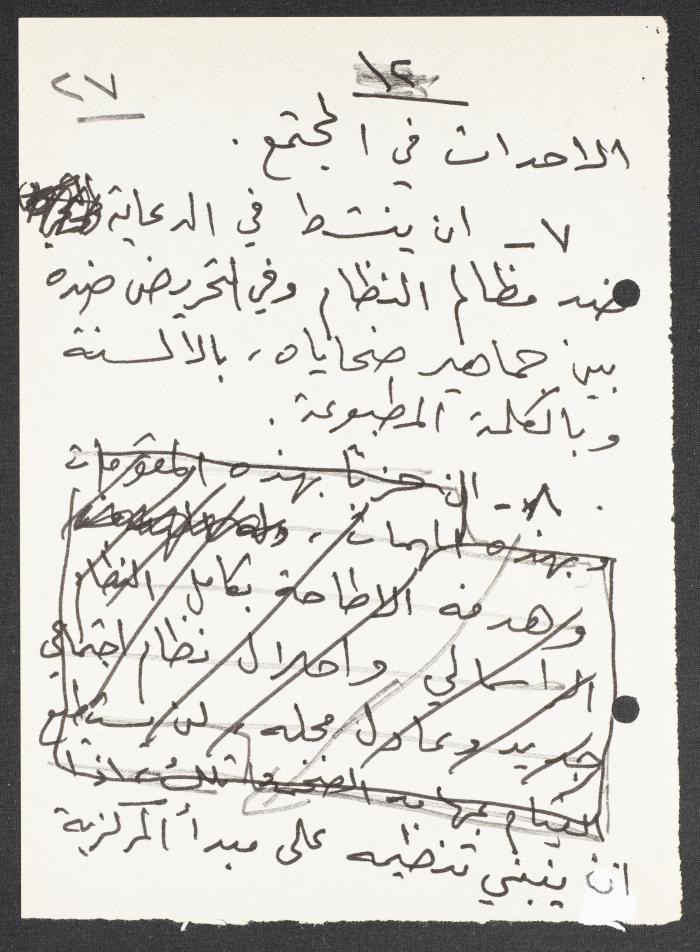 ١٢
٢٧
الاحداث في المجتمع .
٧ - ان ينشط في الدعاية
ضد مظالم النظام وفي التحريض ضده
بين جماهير ضحاياه ، بالألسنة
وبالكلمة المطبوعة .
٨ - ان حزباً بهذه المقومات
وبهذه المهمات ،
وهدفه الاطاحة بكامل النظام
الراسمالي واحلال نظام اجتماعي
جديد وعادل محله ، لن يستطيع
القيام بمهامه الضخمة تلك ، اذا
ان ينبني تنظيمه على مبدأ المركزية